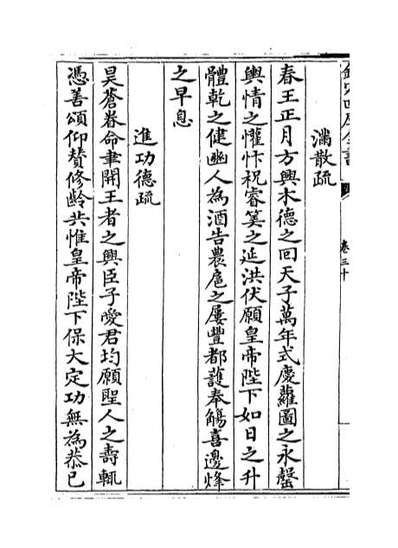 欽定四庫全書
卷三十
滿散疏
春王正月方興木德之回天子萬年式慶蘿圖之永罄
輿情之懽忭祝睿筭之延洪伏願皇帝陛下如日之升
體乾之健豳人為酒告農扈之屢豐都護奉觴喜邊烽
之早息
進功德疏
昊蒼眷命聿開王者之興臣子愛君均願聖人之壽輒
憑善頌仰賛修齡共惟皇帝陛下保大定功無為恭已